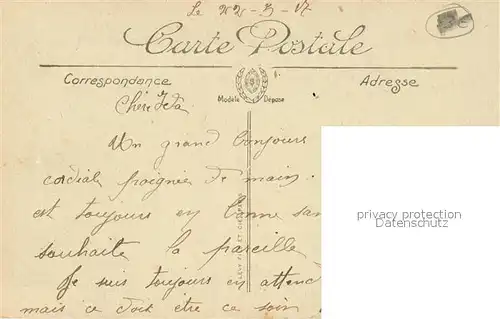 Le 22-3-17
Carte Postale
Correspondance
Adresse
Modèle Déposé
Chère
Un grand bonjours
cordiale poignée de main.
est toujours en bonne san
souhaite la pareille
Je suis toujours en attend
mais ce doit être ce soin
privacy protection
Datenschutz